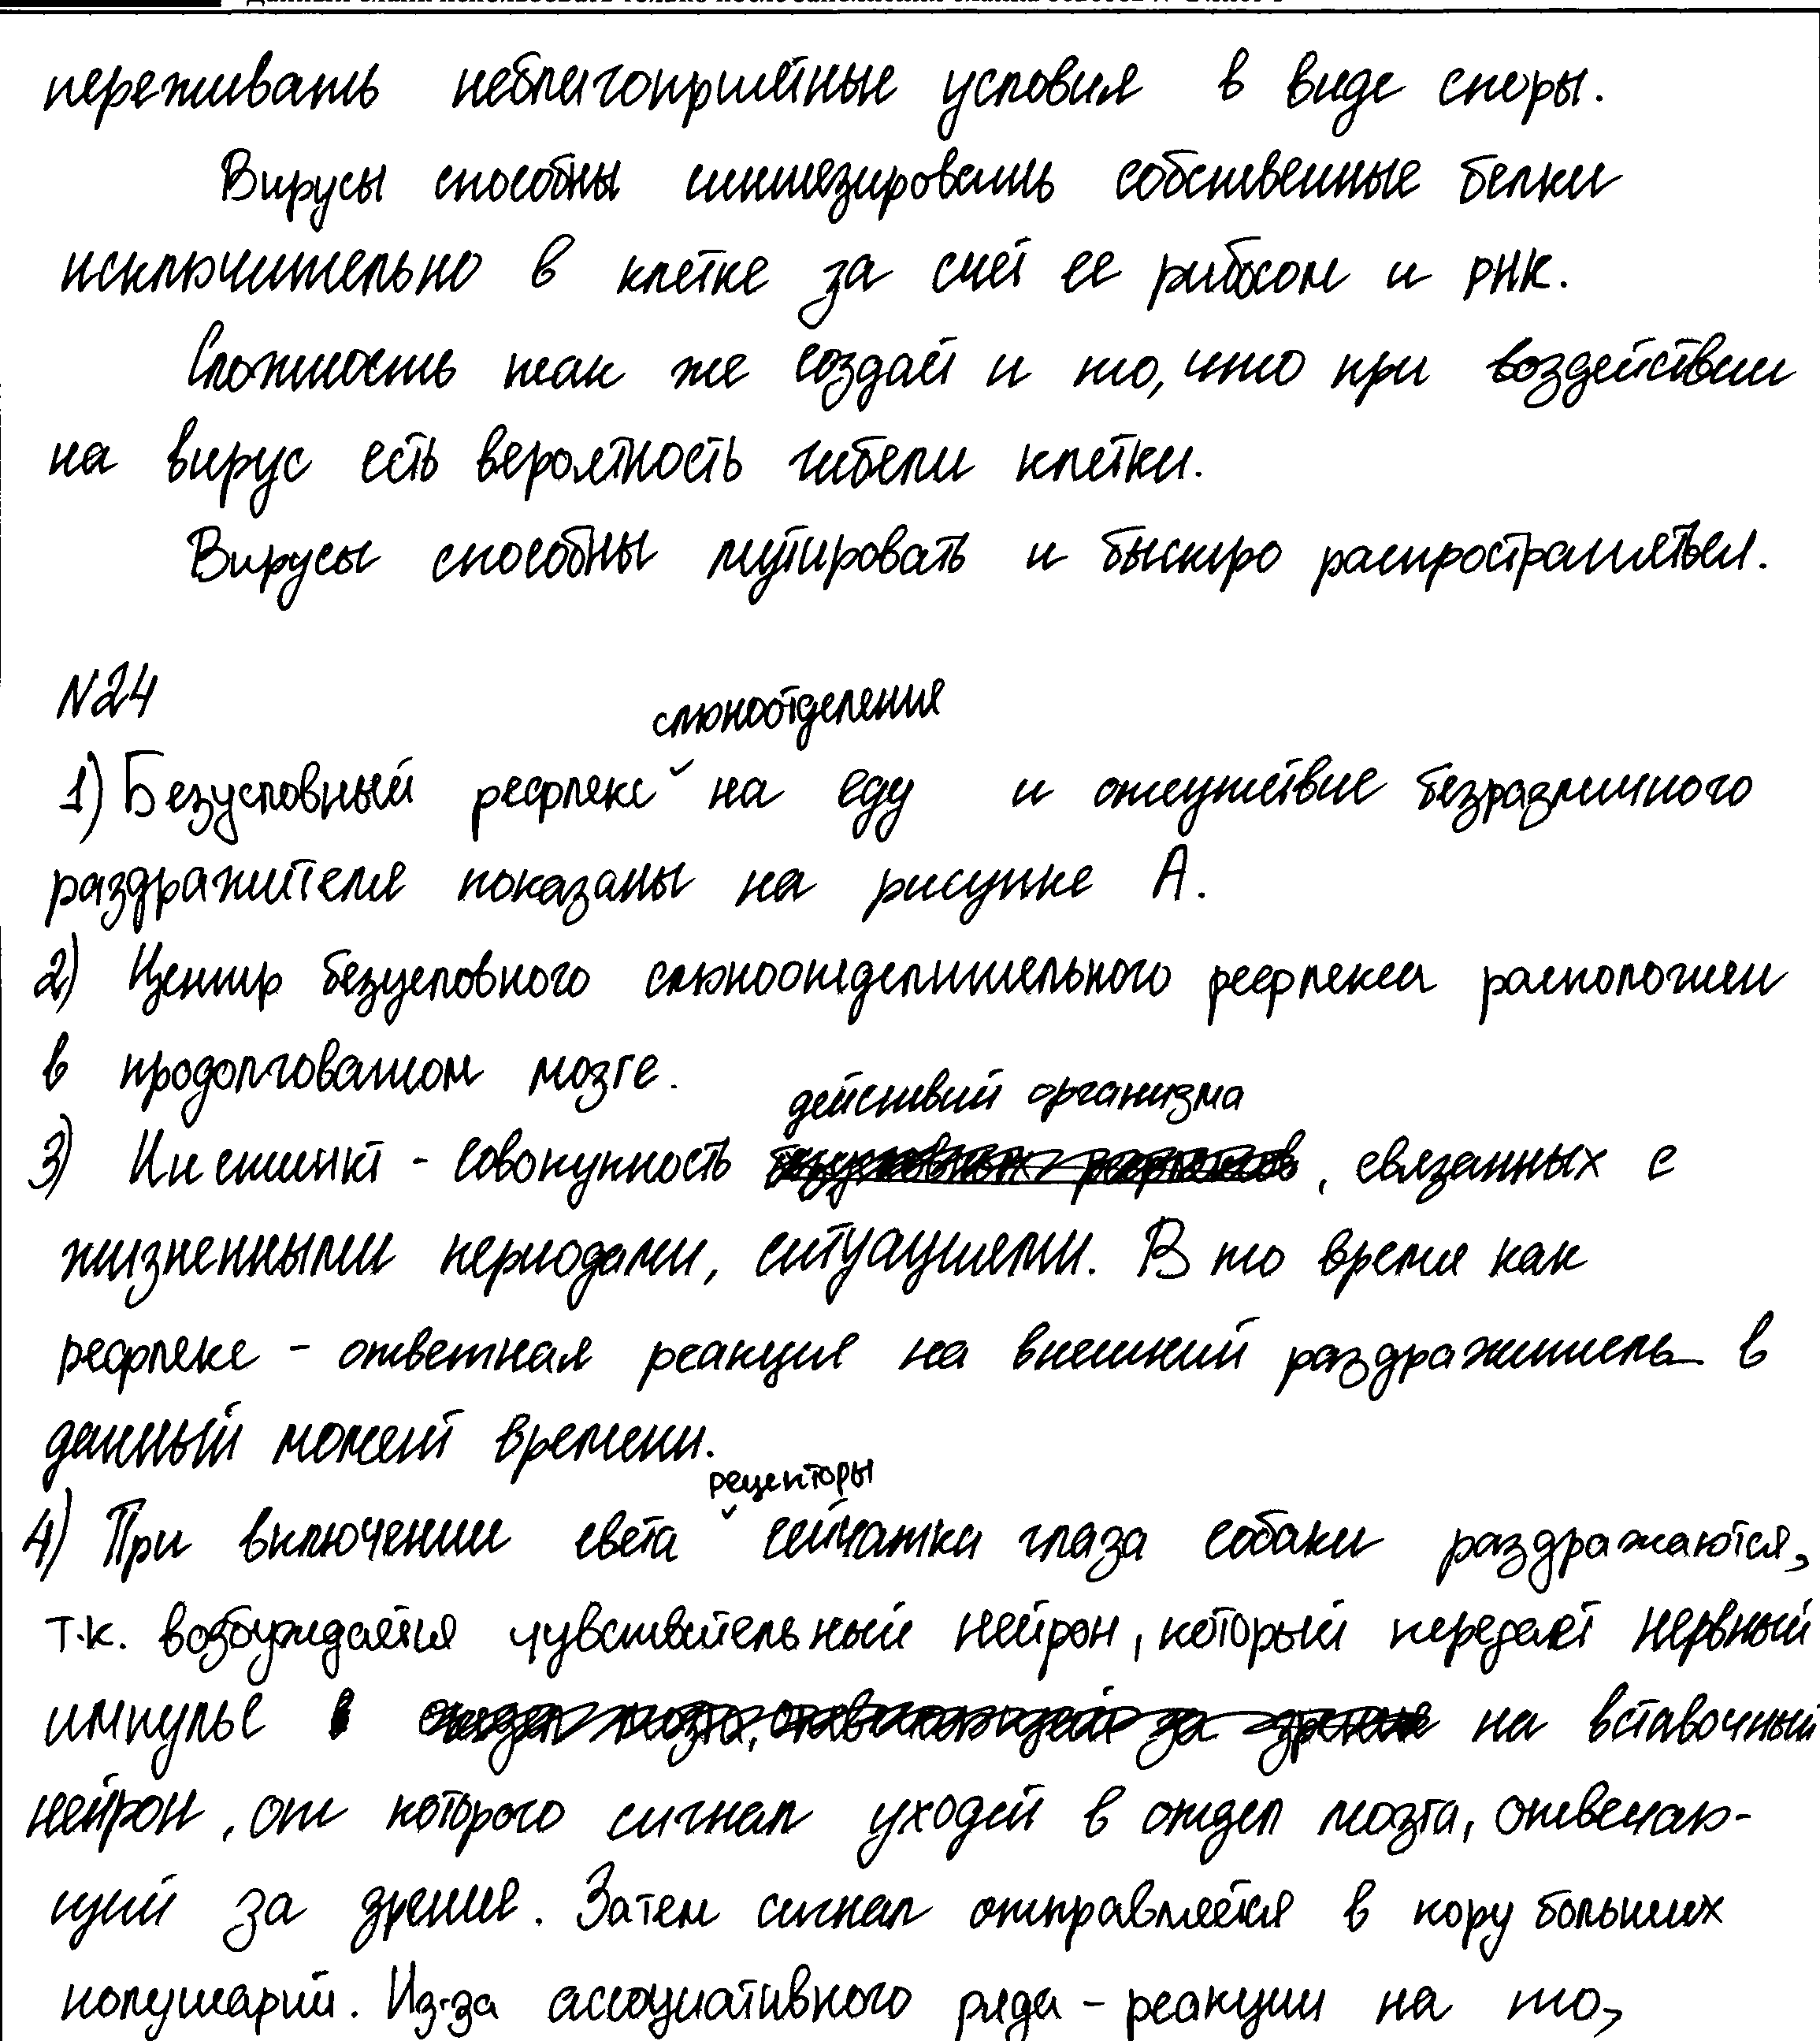 переживать неблагоприятные условия в виде споры.
Вирусы способны синтезировать собственные белки
исключительно в клетке за счёт ее рибосом и РНК.
Сложность так же создаёт и то, что при воздействии
на вирус есть вероятность гибели клетки.
Вирусы способны мутировать и быстро распространяться.
N24
слюноотделения
1) Безусловный рефлекс ˅ на еду и отсутствие безразличного
раздражителя показаны на рисунке А.
2) Центр безусловного слюноотделительного рефлекса расположен
в продолговатом мозге.
действий организма
3) Инстинкт - совокупность , связанных с
жизненными периодами, ситуациями. В то время как
рефлекс - ответная реакция на внешний раздражитель в
данный момент времени.
рецепторы
4) При включении света ˅ сетчатки глаза собаки раздражаются,
т.к. возбуждается чувствительный нейрон, который передает нервный
импульс на вставочный
нейрон, от которого сигнал уходит в отдел мозга, отвечаю-
щий за зрение. Затем сигнал отправляется в кору больших
полушарий. Из-за ассоциативного ряда - реакции на то,